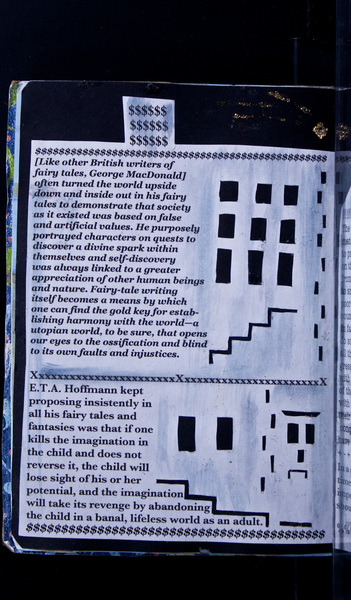 $$$$$$
$$$$$$
$$$$$$
[Like other British writers of
fairy tales, George MacDonald]
often turned the world upside
down and inside out in his fairy
tales to demonstrate that society
as it existed was based on false
and artificial values. He purposely
portrayed characters on quests to
discover a divine spark within
themselves and self-discovery
was always linked to a greater
appreciation of other human beings
and nature. Fairy-tale writing
itself becomes a means by which
one can find the gold key for estab-
lishing harmony with the world—a
utopian world, to be sure, that opens
our eyes to the ossification and blind
to its own faults and injustices.
E.T.A. Hoffmann kept
proposing insistently in
all his fairy tales and
fantasies was that if one
kills the imagination in
the child and does not
reverse it, the child will
lose sight of his or her
potential, and the imagination
will take its revenge by abandoning
the child in a banal, lifeless world as an adult.